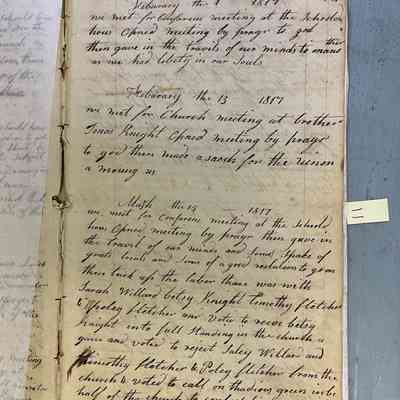 February the 1817
we met for Conference meeting at the School
hous Opned meeting by prayr to god
then gave in the travels of our minds to
as we had liberty in our Souls
February the 13 1817
we met for Church meeting at brother
Knight Opned meeting by prayr
to god then made a sarch for the union
a moung us
March the 15 1817
we met for Conference meeting at the School
hous Opned meeting by prayr then gave in
the travel of our minds and Sum Spake of
trials and Sum of a good resolution to goon
then took up the labor there was with
Sarah Willard betsy Knight Timothy fletcher
& Poley fletcher and Voted to receve betsy
Knight into full Standing in the church a
gane and voted to reject Saley Willard and
Timothy fletcher & Poley fletcher from the
church & voted to call on thadious green in be
half of the church to
11